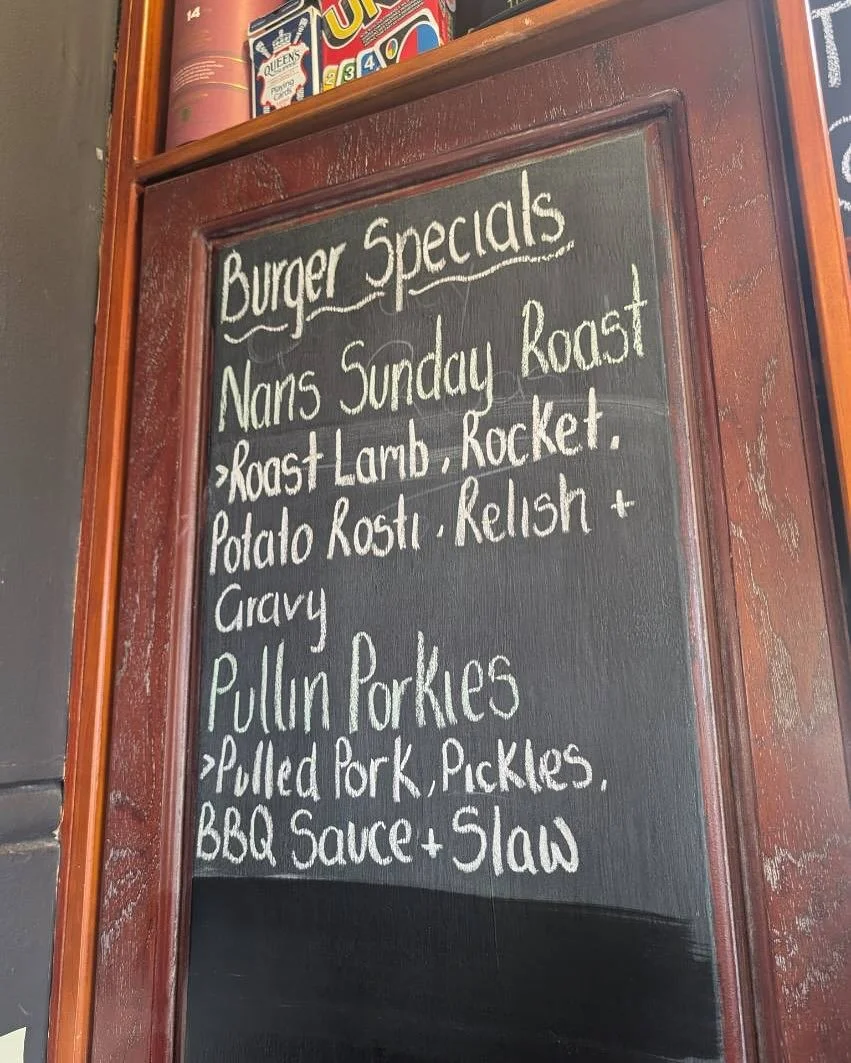 14
QUEEN'S
Playing
Cards
UN
2 3 4
Burger Specials
Nans Sunday Roast
>Roast Lamb, Rocket,
Potato Rosti, Relish +
Gravy
Pullin Porkies
>Pulled Pork, Pickles,
BBQ Sauce + Slaw